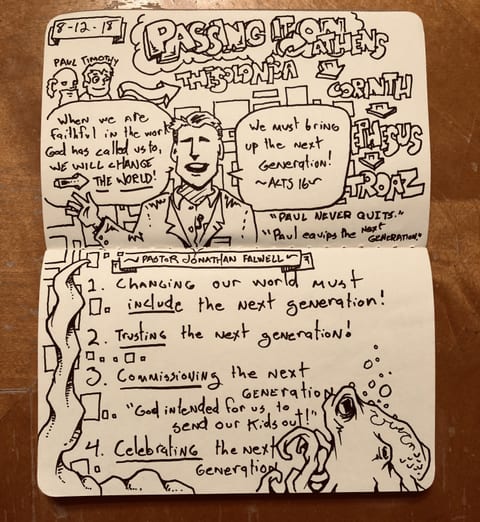 8-12-18
PASSING IT ON
ATHENS
THESSOLONICA
CORINTH
EPHESUS
TROAZ
PAUL TIMOTHY
When we are
faithful in the work
God has called us to,
WE WILL CHANGE
THE WORLD!
We must bring
up the next
Generation!
~ACTS 16~
"PAUL NEVER QUITS."
"Paul equips the Next
GENERATION."
~PASTOR JONATHAN FALWELL~
1. Changing our world must
include the next generation!
2. Trusting the next generation!
3. Commissioning the next
GENERATION
"God intended for us to
send our kids out!"
4. Celebrating the next
Generation